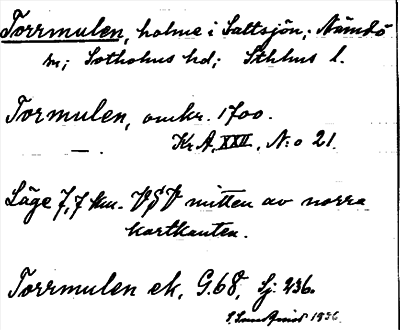 Torrmulen, holme i Saltsjön; Nämdö
sn; Sotholms hd; Sthlms l.
Tormulen, omkr. 1700.
Kr. A, XXII, N:o 21.
Läge 7,7 km. VSV mitten av norra
kartkanten.
Torrmulen ek, G.68, Sj. 236.
1936